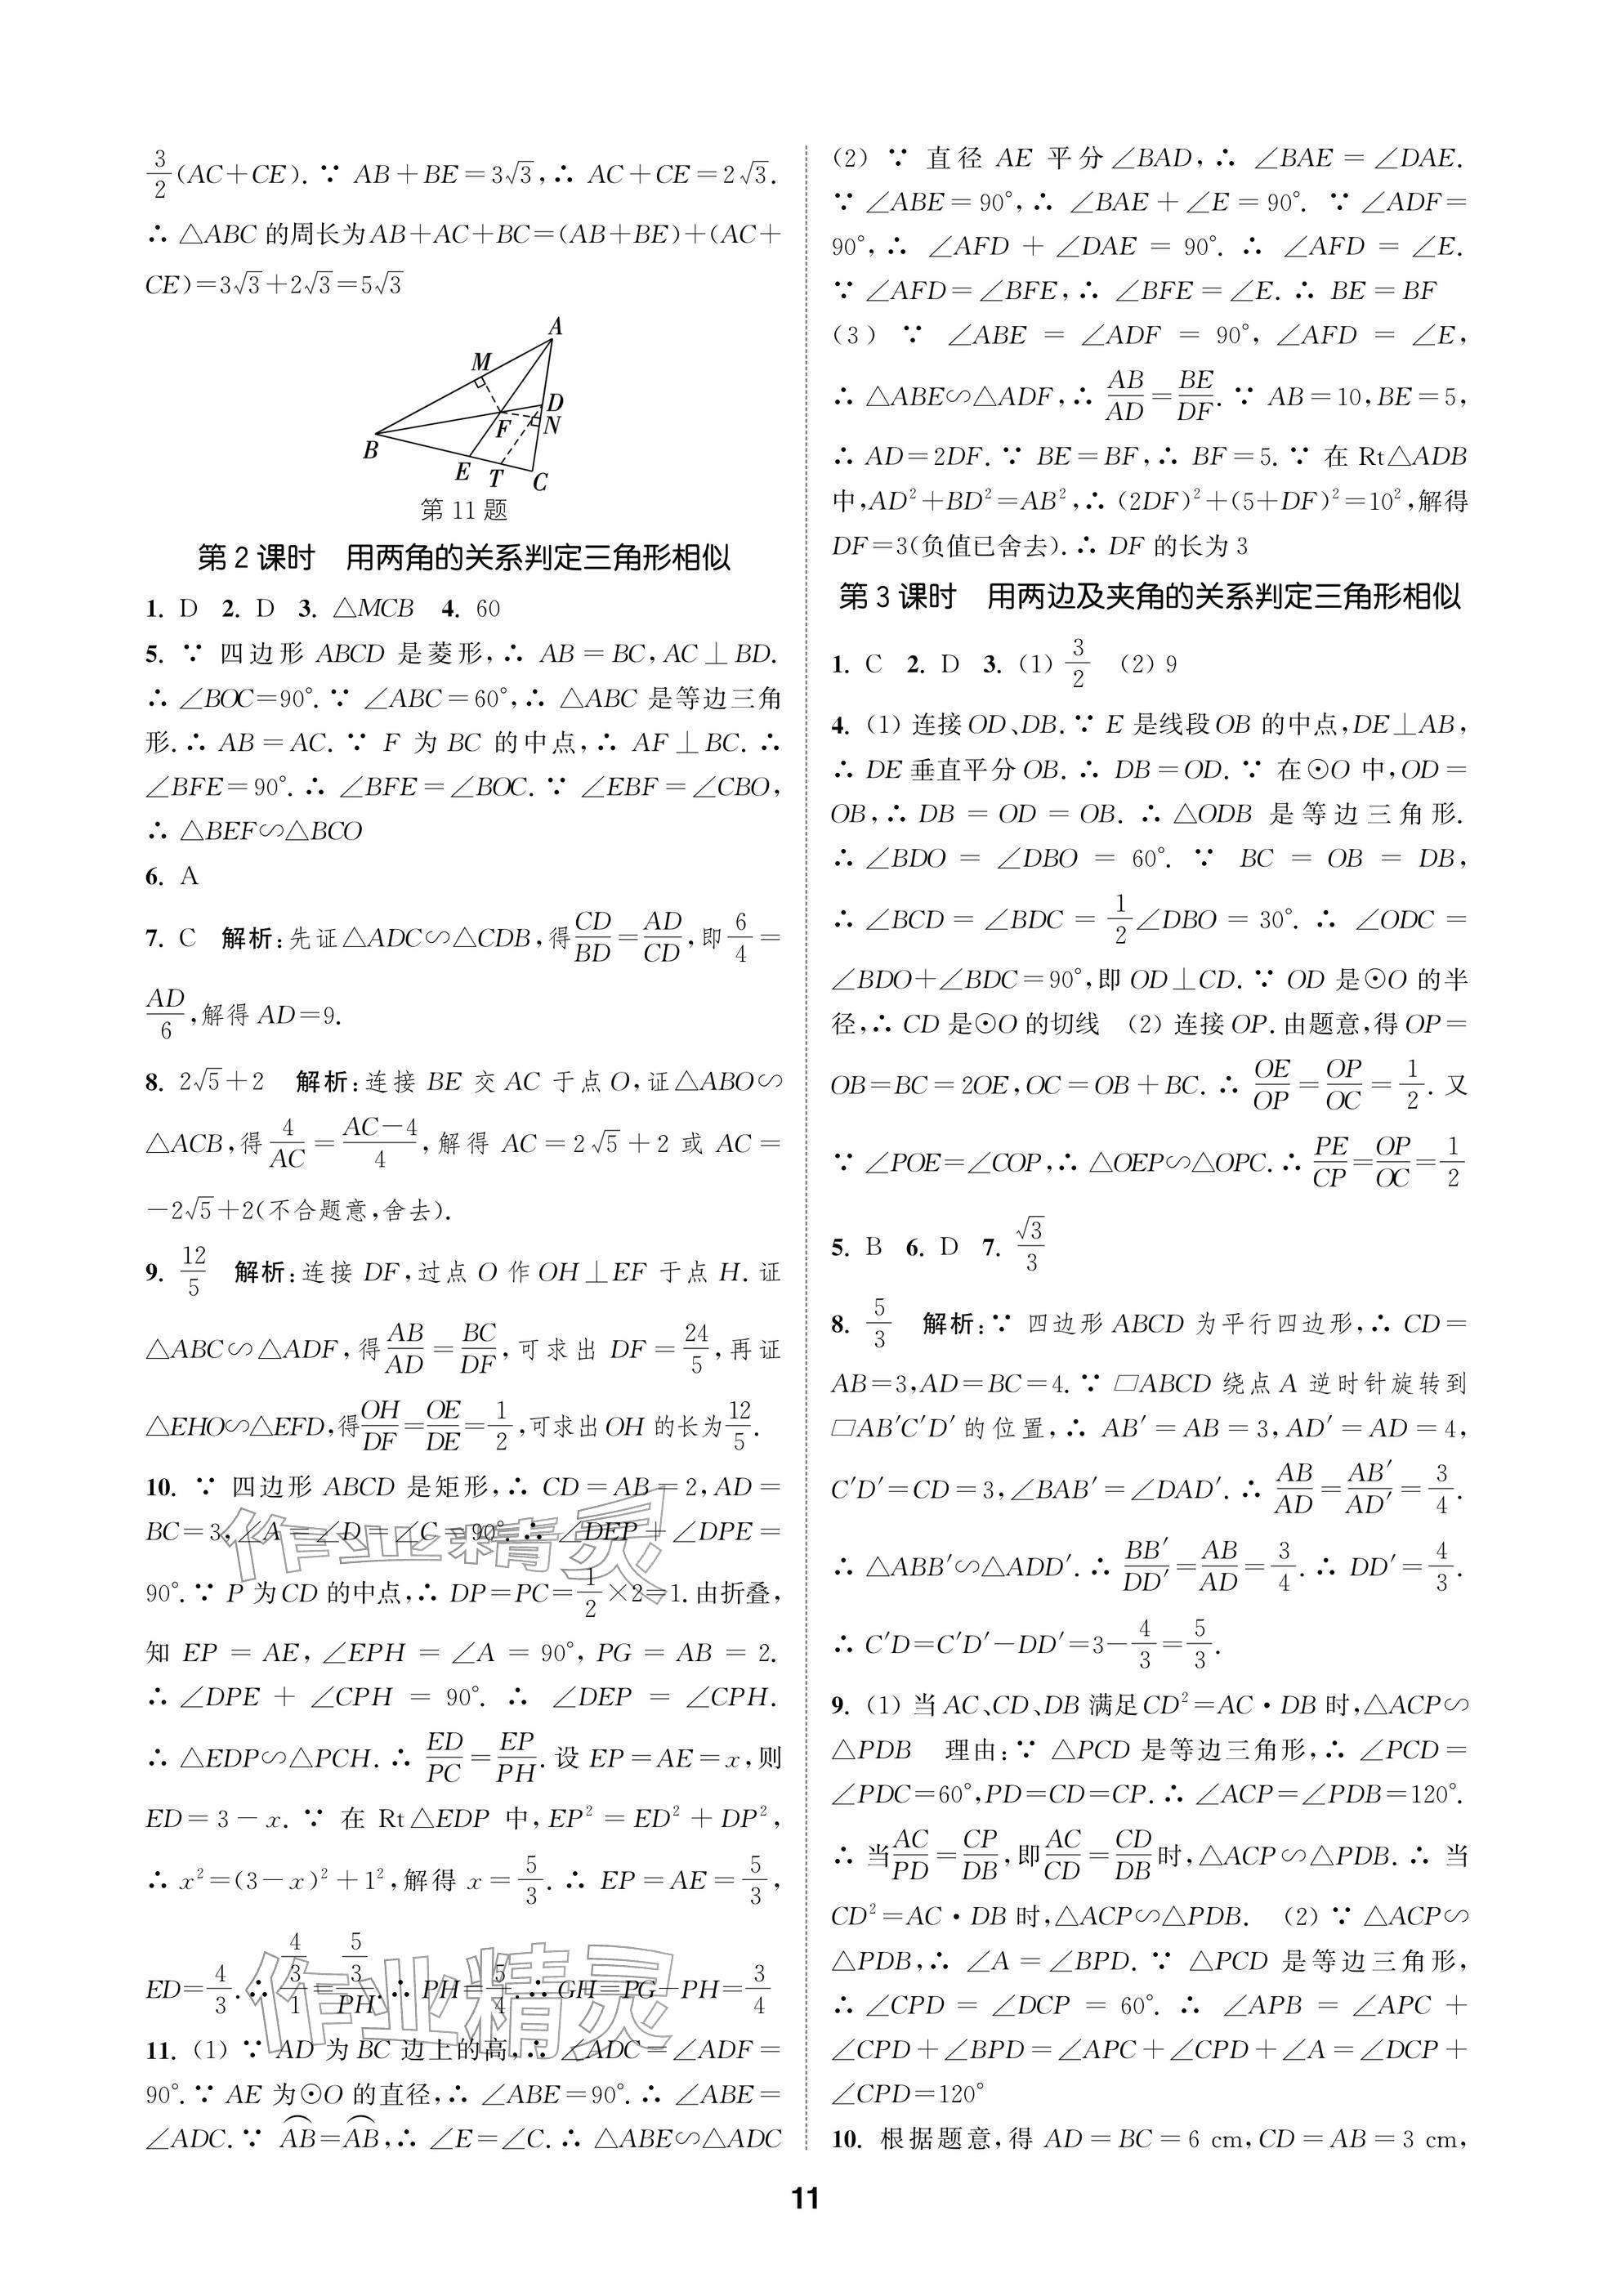 3/2(AC+CE).∵ AB+BE=3√3,∴ AC+CE=2√3.
∴ △ABC 的周长为AB+AC+BC=(AB+BE)+(AC+
CE)=3√3+2√3=5√3
A
M
D
F N
B
E T C
第 11 题
第 2 课时 用两角的关系判定三角形相似
1. D 2. D 3. △MCB 4. 60
5. ∵ 四边形 ABCD 是菱形,∴ AB=BC,AC⊥BD.
∴ ∠BOC=90°.∵ ∠ABC=60°,∴ △ABC 是等边三角
形.∴ AB=AC.∵ F 为 BC 的中点,∴ AF⊥BC.∴
∠BFE=90°.∴ ∠BFE=∠BOC.∵ ∠EBF=∠CBO,
∴ △BEF∽△BCO
6. A
7. C 解析:先证△ADC∽△CDB,得CD/BD=AD/CD,即6/4=
AD/6,解得 AD=9.
8. 2√5+2 解析:连接 BE 交 AC 于点 O,证△ABO∽
△ACB,得4/AC=(AC-4)/4,解得 AC=2√5+2 或 AC=
-2√5+2(不合题意,舍去).
9. 12/5 解析:连接 DF,过点 O 作 OH⊥EF 于点 H.证
△ABC∽△ADF,得AB/AD=BC/DF,可求出 DF=24/5,再证
△EHO∽△EFD,得OH/DF=OE/DE=1/2,可求出OH 的长为12/5.
10. ∵ 四边形 ABCD 是矩形,∴ CD=AB=2,AD=
BC=3,∠A=∠D=∠C=90°.∴ ∠DEP+∠DPE=
90°.∵ P 为CD 的中点,∴ DP=PC=1/2×2=1.由折叠,
知 EP=AE,∠EPH=∠A=90°,PG=AB=2.
∴ ∠DPE+∠CPH=90°.∴ ∠DEP=∠CPH.
∴ △EDP∽△PCH.∴ ED/PC=EP/PH.设 EP=AE=x,则
ED=3-x.∵ 在 Rt△EDP 中,EP²=ED²+DP²,
∴ x²=(3-x)²+1²,解得 x=5/3.∴ EP=AE=5/3,
ED=4/3.∴ (4/3)/1=(5/3)/PH.∴ PH=5/4.∴ GH=PG-PH=3/4
11. (1) ∵ AD 为 BC 边上的高,∴ ∠ADC=∠ADF=
90°.∵ AE 为⊙O 的直径,∴ ∠ABE=90°.∴ ∠ABE=
∠ADC.∵ ⌒AB=⌒AB,∴ ∠E=∠C.∴ △ABE∽△ADC
(2) ∵ 直径 AE 平分∠BAD,∴ ∠BAE=∠DAE.
∵ ∠ABE=90°,∴ ∠BAE+∠E=90°. ∵ ∠ADF=
90°,∴ ∠AFD+∠DAE=90°.∴ ∠AFD=∠E.
∵ ∠AFD=∠BFE,∴ ∠BFE=∠E.∴ BE=BF
(3) ∵ ∠ABE=∠ADF=90°,∠AFD=∠E,
∴ △ABE∽△ADF,∴ AB/AD=BE/DF.∵ AB=10,BE=5,
∴ AD=2DF.∵ BE=BF,∴ BF=5.∵ 在 Rt△ADB
中,AD²+BD²=AB²,∴ (2DF)²+(5+DF)²=10²,解得
DF=3(负值已舍去).∴ DF 的长为 3
第 3 课时 用两边及夹角的关系判定三角形相似
1. C 2. D 3. (1) 3/2 (2) 9
4. (1) 连接OD、DB.∵ E 是线段OB 的中点,DE⊥AB,
∴ DE 垂直平分 OB.∴ DB=OD.∵ 在⊙O 中,OD=
OB,∴ DB=OD=OB.∴ △ODB 是等边三角形.
∴ ∠BDO=∠DBO=60°.∵ BC=OB=DB,
∴ ∠BCD=∠BDC=1/2∠DBO=30°.∴ ∠ODC=
∠BDO+∠BDC=90°,即 OD⊥CD.∵ OD 是⊙O 的半
径,∴ CD 是⊙O 的切线 (2) 连接 OP.由题意,得 OP=
OB=BC=2OE,OC=OB+BC.∴ OE/OP=OP/OC=1/2.又
∵ ∠POE=∠COP,∴ △OEP∽△OPC.∴ PE/CP=OP/OC=1/2
5. B 6. D 7. √3/3
8. 5/3 解析:∵ 四边形 ABCD 为平行四边形,∴ CD=
AB=3,AD=BC=4.∵ ▱ABCD 绕点 A 逆时针旋转到
▱AB′C′D′的位置,∴ AB′=AB=3,AD′=AD=4,
C′D′=CD=3,∠BAB′=∠DAD′.∴ AB/AD=AB′/AD′=3/4.
∴ △ABB′∽△ADD′.∴ BB′/DD′=AB/AD=3/4.∴ DD′=4/3.
∴ C′D=C′D′-DD′=3-4/3=5/3.
9. (1) 当 AC、CD、DB 满足CD²=AC·DB 时,△ACP∽
△PDB 理由:∵ △PCD 是等边三角形,∴ ∠PCD=
∠PDC=60°,PD=CD=CP.∴ ∠ACP=∠PDB=120°.
∴ 当AC/PD=CP/DB,即AC/CD=CD/DB时,△ACP∽△PDB.∴ 当
CD²=AC·DB 时,△ACP∽△PDB. (2) ∵ △ACP∽
△PDB,∴ ∠A=∠BPD.∵ △PCD 是等边三角形,
∴ ∠CPD=∠DCP=60°.∴ ∠APB=∠APC+
∠CPD+∠BPD=∠APC+∠CPD+∠A=∠DCP+
∠CPD=120°
10. 根据题意,得 AD=BC=6 cm,CD=AB=3 cm,
作业精灵
作业精灵
11